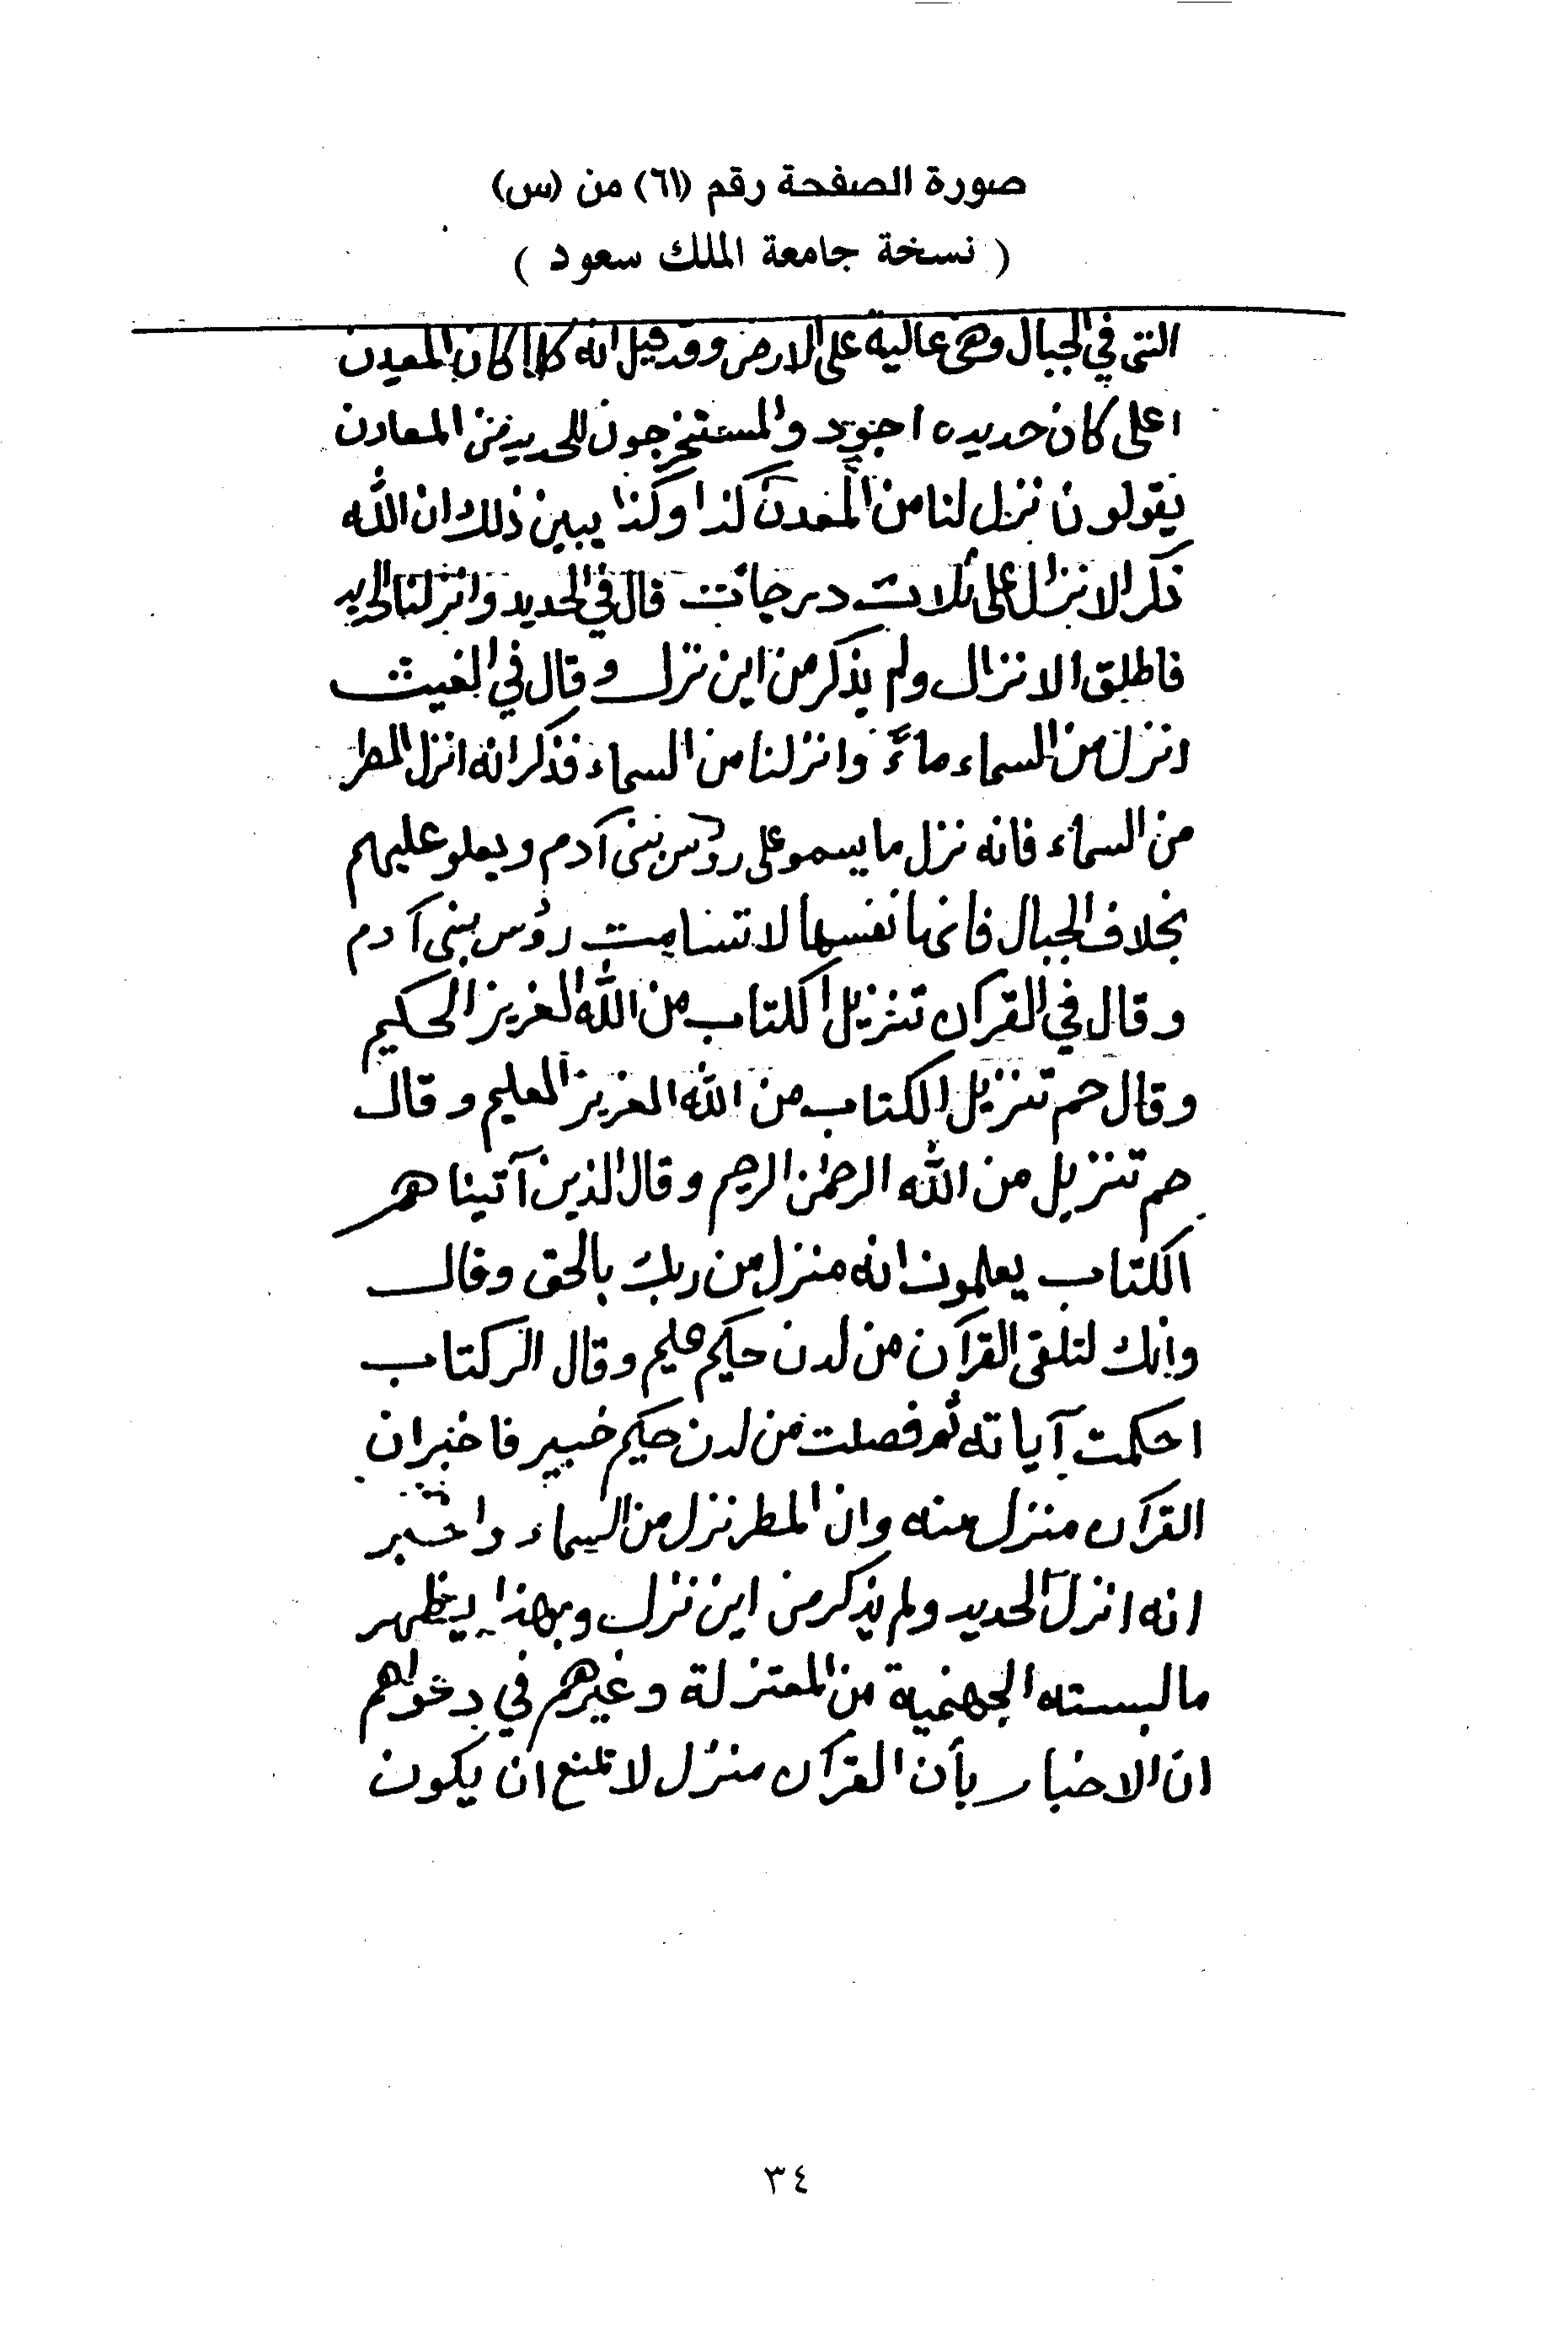 صورة الصفحة رقم (٦١) من (س)
( نسخة جامعة الملك سعود )
التى في الجبال وهي عالية على الارض وقد قيل انه كلما كان المعدن
اعلى كان حديده اجود والمستخرجون للحديد من المعادن
يقولون نزل لنا من المعدن كذا وكذا يبين ذلك ان الله
ذكر الانزال على ثلاث درجات قال في الحديد وانزلنا الحديد
فاطلق الانزال ولم يذكر من اين نزل وقال في الغيث
انزل من السماء ماءً وانزلنا من السماء فذكر انه انزل المطر
من السماء فانه نزل ما يسمو على رؤس بنى آدم ويعلو عليهم
بخلاف الجبال فانها نفسها لا تسامت رؤس بنى آدم
وقال في القرآن تنزيل الكتاب من الله العزيز الحكيم
وقال حم تنزيل الكتاب من الله العزيز العليم وقال
حم تنزيل من الله الرحمن الرحيم وقال الذين آتيناهم
الكتاب يعلمون انه منزل من ربك بالحق وقال
وانك لتلقى القرآن من لدن حكيم عليم وقال الر كتاب
احكمت آياته ثم فصلت من لدن حكيم خبير فاخبر ان
القرآن منزل منه وان المطر نزل من السماء واخبر
انه انزل الحديد ولم يذكر من اين نزل وبهذا يظهر
ما لبسته الجهمية من المعتزلة وغيرهم في دعواهم
ان الاخبار بأن القرآن منزل لا تمنع ان يكون
٣٤